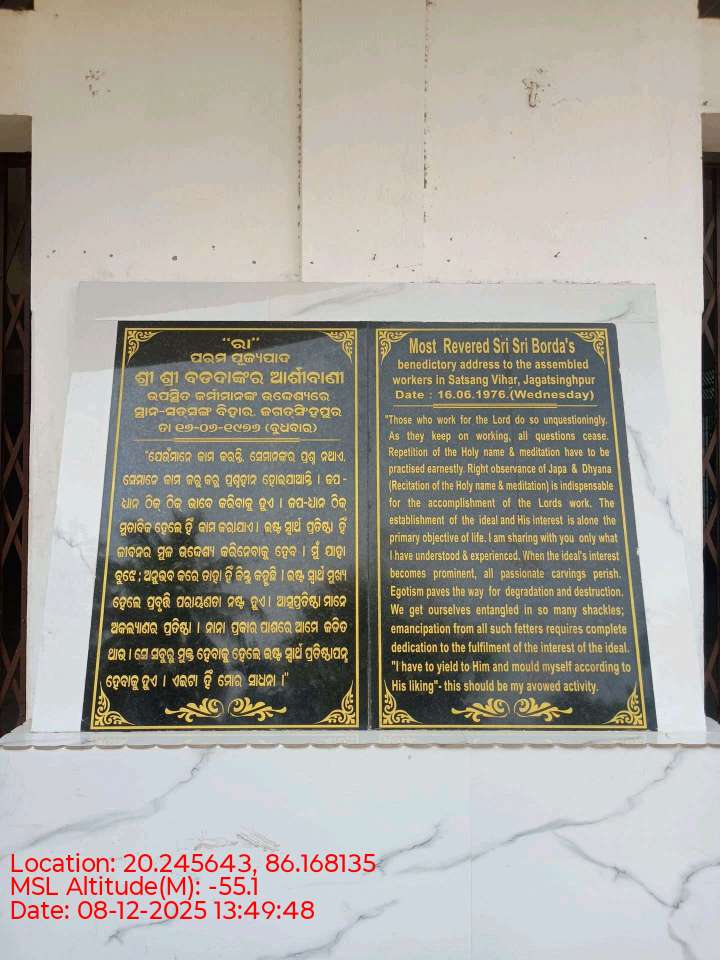 "ରା"
ପରମ ପୂଜ୍ୟପାଦ
ଶ୍ରୀ ଶ୍ରୀ ବଡଦାଙ୍କର ଆର୍ଶୀବାଣୀ
ଉପସ୍ଥିତ କର୍ମୀମାନଙ୍କ ଉଦ୍ଦେଶ୍ୟରେ
ସ୍ଥାନ-ସତ୍ସଙ୍ଗ ବିହାର, ଜଗତ୍‌ସିଂହପୁର
ତା ୧୬-୦୬-୧୯୭୬ (ବୁଧବାର)
"ଯେଉଁମାନେ କାମ କରନ୍ତି, ସେମାନଙ୍କର ପ୍ରଶ୍ନ ନଥାଏ,
ସେମାନେ କାମ କରୁ କରୁ ପ୍ରଶ୍ନହୀନ ହୋଇଯାଆନ୍ତି । ଜପ -
ଧ୍ୟାନ ଠିକ୍ ଠିକ୍ ଭାବେ କରିବାକୁ ହୁଏ । ଜପ-ଧ୍ୟାନ ଠିକ୍
ମୁତାବିକ ହେଲେ ହିଁ କାମ କରାଯାଏ । ଇଷ୍ଟ ସ୍ୱାର୍ଥ ପ୍ରତିଷ୍ଠା ହିଁ
ଜୀବନର ମୂଳ ଉଦ୍ଦେଶ୍ୟ କରିନେବାକୁ ହେବ । ମୁଁ ଯାହା
ବୁଝେ ; ଅନୁଭବ କରେ ତାହା ହିଁ କିନ୍ତୁ କହୁଛି । ଇଷ୍ଟ ସ୍ୱାର୍ଥ ମୁଖ୍ୟ
ହେଲେ ପ୍ରବୃତ୍ତି ପରାୟଣତା ନଷ୍ଟ ହୁଏ । ଆତ୍ମପ୍ରତିଷ୍ଠା ମାନେ
ଅକଲ୍ୟାଣର ପ୍ରତିଷ୍ଠା । ନାନା ପ୍ରକାର ପାଶରେ ଆମେ ଜଡିତ
ଥାଉ । ସେ ସବୁରୁ ମୁକ୍ତ ହେବାକୁ ହେଲେ ଇଷ୍ଟ ସ୍ୱାର୍ଥ ପ୍ରତିଷ୍ଠାପନ୍ନ
ହେବାକୁ ହୁଏ । ଏଇଟା ହିଁ ମୋର ସାଧନା ।"
Most Revered Sri Sri Borda's
benedictory address to the assembled
workers in Satsang Vihar, Jagatsinghpur
Date : 16.06.1976.(Wednesday)
"Those who work for the Lord do so unquestioningly.
As they keep on working, all questions cease.
Repetition of the Holy name & meditation have to be
practised earnestly. Right observance of Japa & Dhyana
(Recitation of the Holy name & meditation) is indispensable
for the accomplishment of the Lords work. The
establishment of the ideal and His interest is alone the
primary objective of life. I am sharing with you only what
I have understood & experienced. When the ideal's interest
becomes prominent, all passionate carvings perish.
Egotism paves the way for degradation and destruction.
We get ourselves entangled in so many shackles;
emancipation from all such fetters requires complete
dedication to the fulfilment of the interest of the ideal.
"I have to yield to Him and mould myself according to
His liking"- this should be my avowed activity.
Location: 20.245643, 86.168135
MSL Altitude(M): -55.1
Date: 08-12-2025 13:49:48